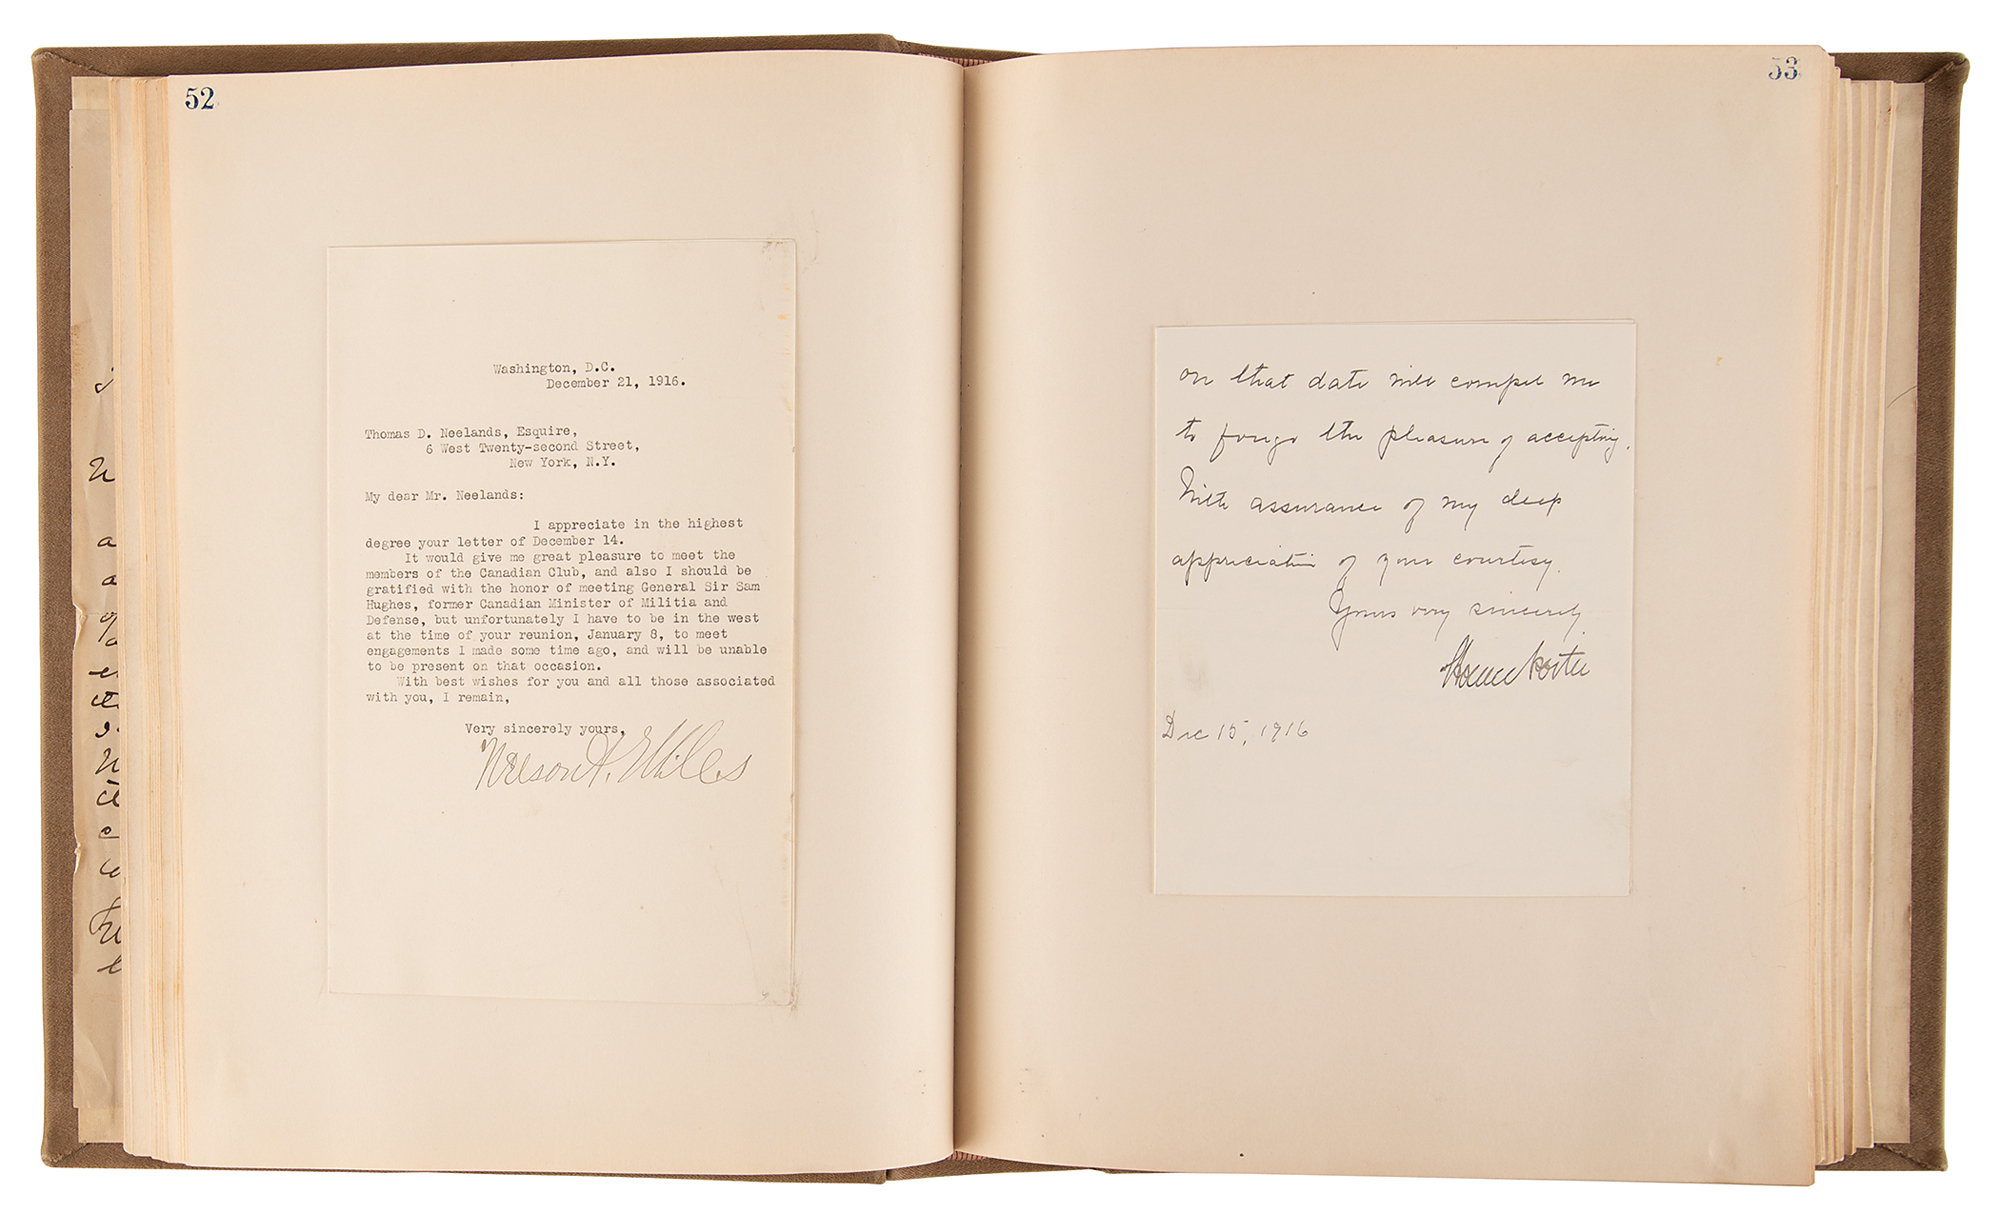 52
Washington, D.C.
December 21, 1916.
Thomas D. Neelands, Esquire,
6 West Twenty-second Street,
New York, N.Y.
My dear Mr. Neelands:
I appreciate in the highest
degree your letter of December 14.
It would give me great pleasure to meet the
members of the Canadian Club, and also I should be
gratified with the honor of meeting General Sir Sam
Hughes, former Canadian Minister of Militia and
Defense, but unfortunately I have to be in the west
at the time of your reunion, January 8, to meet
engagements I made some time ago, and will be unable
to be present on that occasion.
With best wishes for you and all those associated
with you, I remain,
Very sincerely yours,
Nelson A. Miles
53
on that date will compel me
to forego the pleasure of accepting.
With assurance of my deep
appreciation of your courtesy.
Yours very sincerely
Horace Porter
Dec 15, 1916